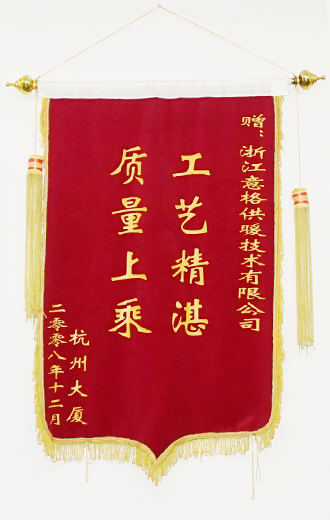 赠：浙江意格供暖技术有限公司
工艺精湛
质量上乘
杭州大厦
二零零八年十二月